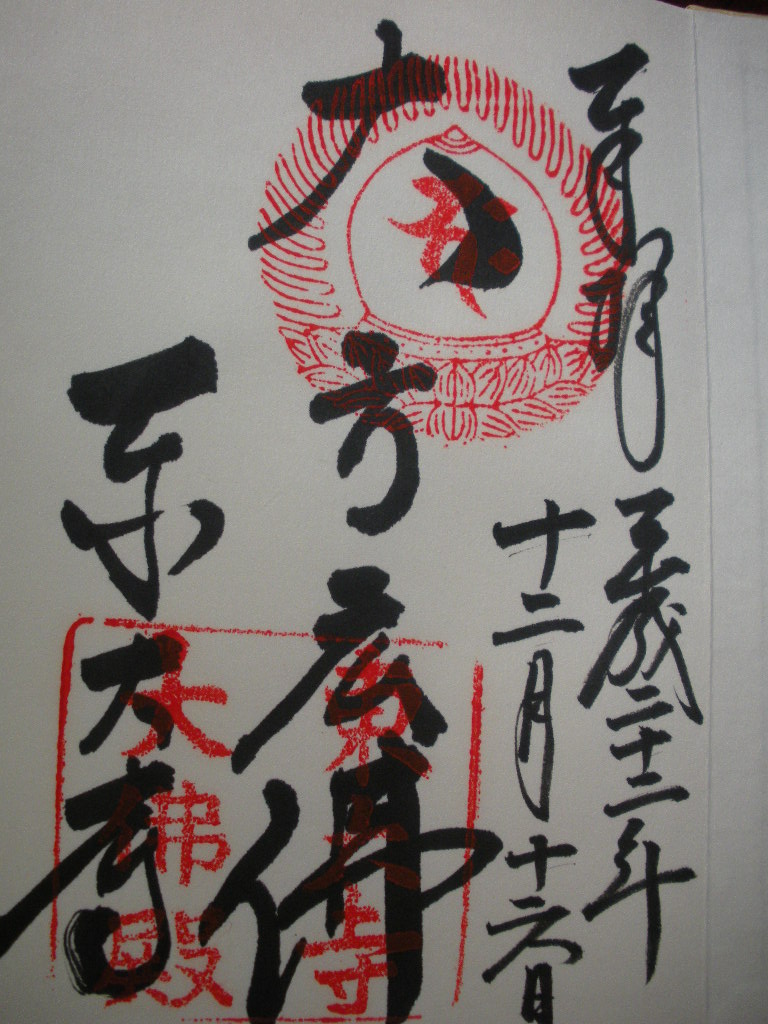 奉拝
平成二十二年
十二月十六日
大方広佛
東大寺
東大寺
大佛殿